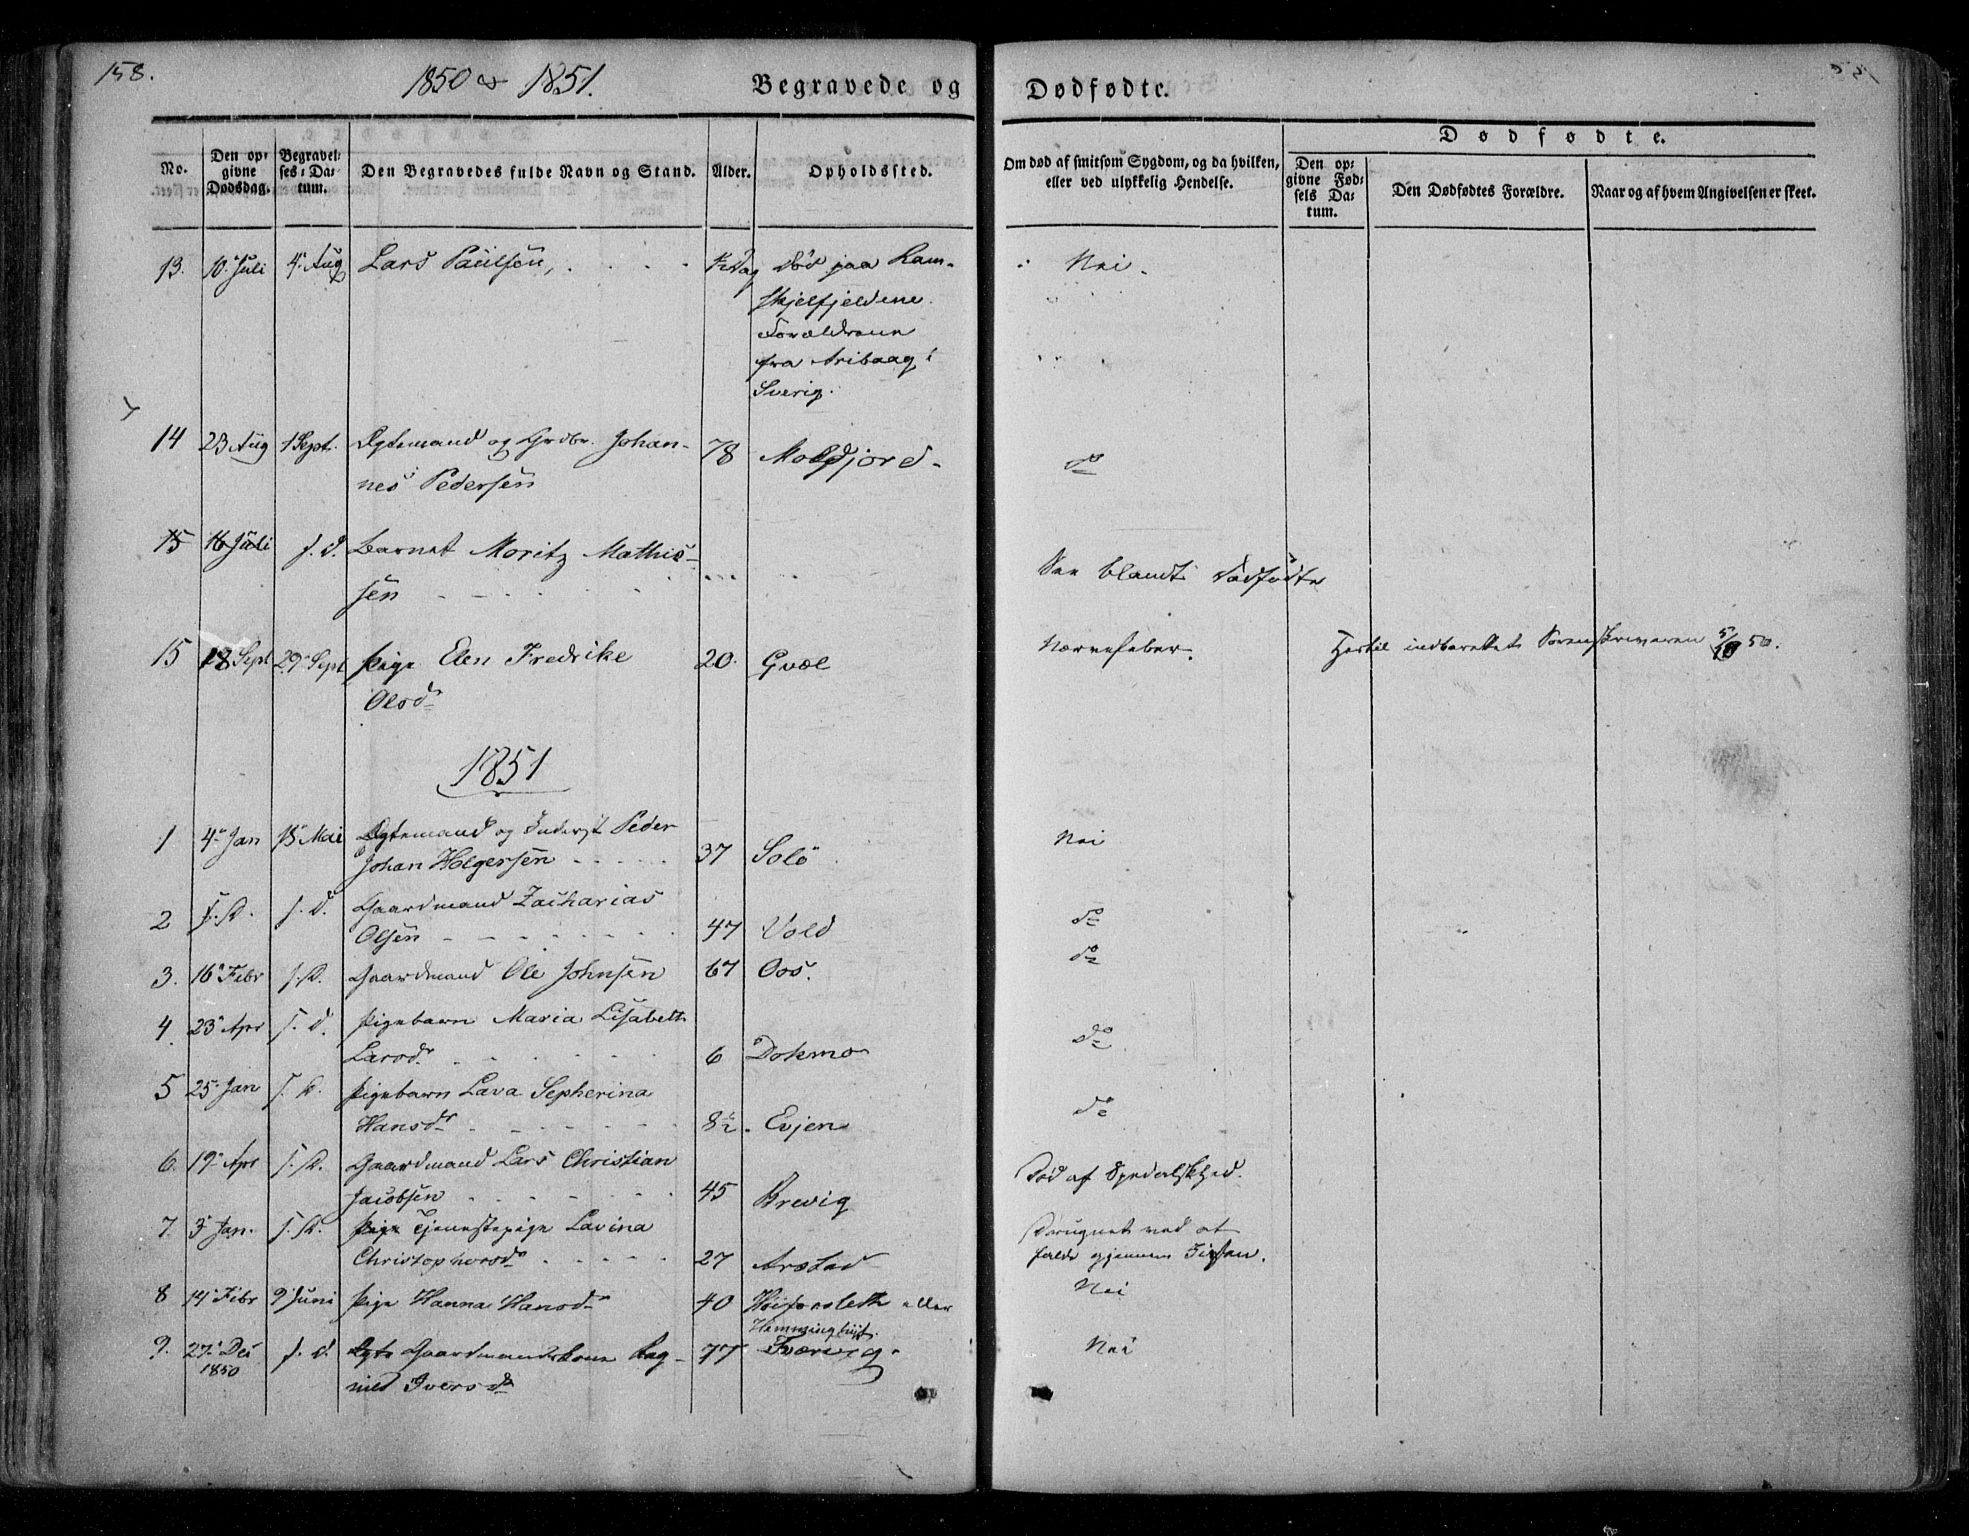 158.
1850 & 1851.
Begravede og Dødfødte.
Dødfødte.
No.
Den opgivne Dødsdag.
Begravelses-Datum.
Den Begravedes fulde Navn og Stand.
Alder.
Opholdssted.
Om død af smitsom Sygdom, og da hvilken, eller ved ulykkelig Hendelse.
Den opgivne Fødsels Datum.
Den Dødfødtes Forældre.
Naar og af hvem Angivelsen er skeet.
13. 10 Juli 4 Aug Lars Paulsen, Død paa Ram- Nei.
skjelfjeldene.
Forældrene
fra Aribaag i
Sverig.
14 23 Aug 1 Sept. Egtemand og Grdbr. Johan- 78 Moldjord. do
nes Pedersen
15 16 Juli s. d. Barnet Moritz Mathis-
sen See blandt Dødfødte
15 18 Sept 29 Sept Pige Elen Fredrike 20. Gvæl Nervefeber. Hertil indberettet Sorenskriveren 5/10 50.
Olsdr
1851
1 4 Jan 15 Mai Egtemand og Inderst Peder Nei
Johan Holgersen 37 Solø
2 s. D. s. d. Gaardmand Zacharias do
Olsen 47 Vold
3. 16 Febr s. D. Gaardmand Ole Johnsen 67 Oos. do
4. 23 Apr s. d. Pigebarn Maria Lisabeth do
Larsdr 6 Dokmo
5 25 Jan s. D. Pigebarn Lava Sepherina do
Hansdr 8½. Evjen
6. 19 Apr s. D. Gaardmand Lars Christian Død af Spedalskhed.
Jacobsen 45 Brevig
7. 3 Jan. s. D. Pige Tjenestepige Lavina Druknet ved at
Christophersdr 27 Arstad falde gjennem Iisen.
8 14 Febr 9 Juni Pige Hanna Hansdr 40 Høiforsleth eller Nei
Hemminghyt.
9. 27 Des s. d. Egte Gaardmandskone Rag- 77 Tværvig. Nei
1850 nild Iversdr